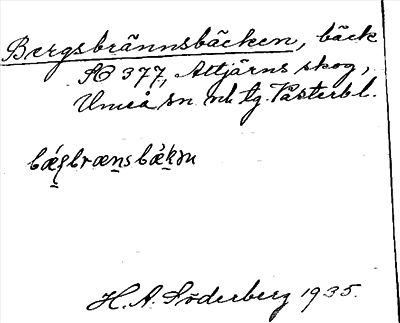 Bergsbrännsbäcken, bäck
AB 377, Attjärns skog,
Umeå sn. nb. tg. Västerbl.
bæ̀ʂbrænsbæ̀kən
H. A. Söderberg 1935.